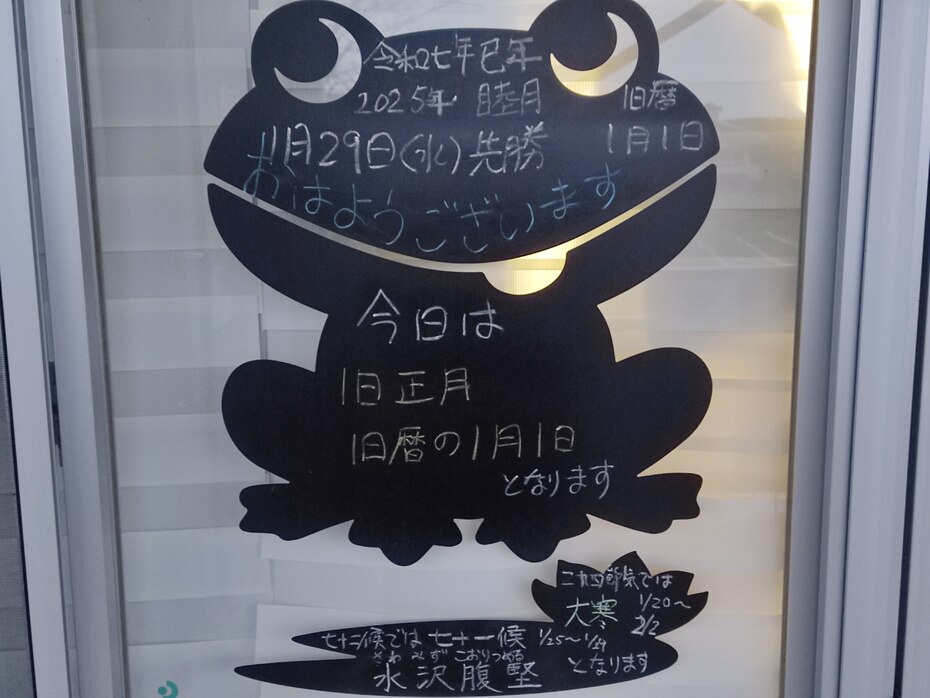 令和七年巳年
2025年 睦月
旧暦
1月1日
1月29日(水)先勝
おはようございます
今日は
旧正月
旧暦の1月1日
となります
二十四節気では
大寒 1/20～2/2
七十二候では七十一候 1/25～1/29
さわ みず こおりつめる
水沢腹堅 となります